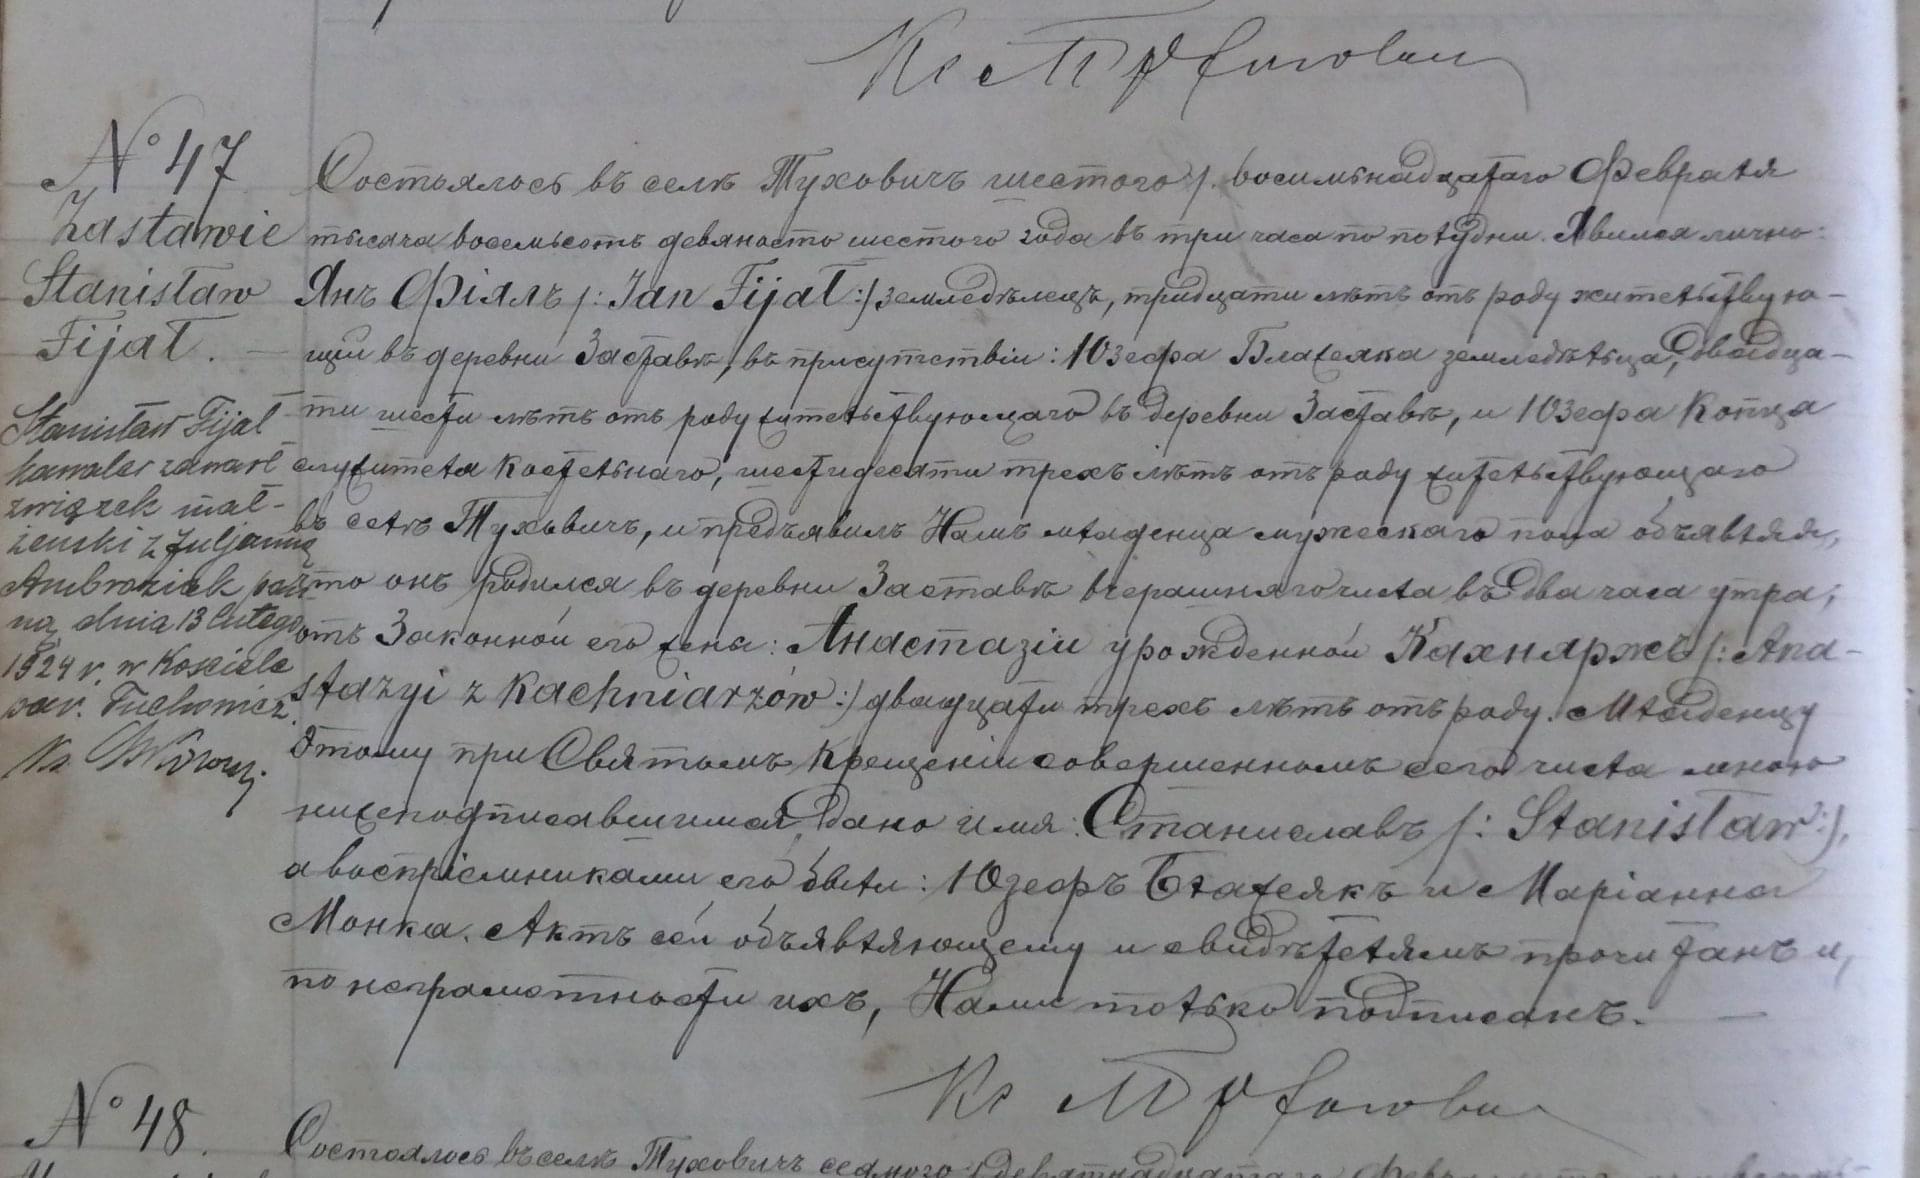 № 47
Zastawie
Stanisław
Fijał.
Stanisław Fijał
kawaler zawarł
związek mał-
żeński z Juljanną
Ambroziak
dnia 13 lutego
1924 r. w Kościele
par. Tuchowicz.
Ks.
Состоялось въ селѣ Туховичъ шестого /. восимьнадцатаго Февраля
тысяча восемьсотъ девяносто шестого года въ три часа по полудни. Явился лично:
Янъ Фіялъ /: Jan Fijał :/ земледѣлецъ, тридцати лѣтъ отъ роду жительствую-
щій въ деревни Заставѣ, въ присутствіи: Юзефа Блажеяка земледѣльца, двадца-
ти шести лѣтъ отъ роду жительствующаго въ деревни Заставѣ, и Юзефа Копца
служителя костельнаго, шестидесяти трехъ лѣтъ отъ роду жительствующаго
въ селѣ Туховичъ, и предъявилъ Намъ младенца мужескаго пола объявляя,
что онъ родился въ деревни Заставѣ вчерашняго числа въ два часа утра,
отъ Законной его жены: Анастазіи урожденной Кахняржъ /: Ana-
stazyi z Kachniarzów :/ двадцати трехъ лѣтъ отъ роду. Младенцу
этому при Святомъ Крещеніи совершенномъ сего числа мною
нижеподписавшимся, дано имя: Станиславъ /: Stanisław :/,
а воспріемниками его были: Юзефъ Блажеякъ и Маріанна
Монка. Актъ сей объявляющему и свидѣтелямъ прочитанъ и,
по неграмотности ихъ, Нами только подписанъ.
Кс
№ 48.
Состоялось въ селѣ Туховичъ седмого /. девятнадцатаго